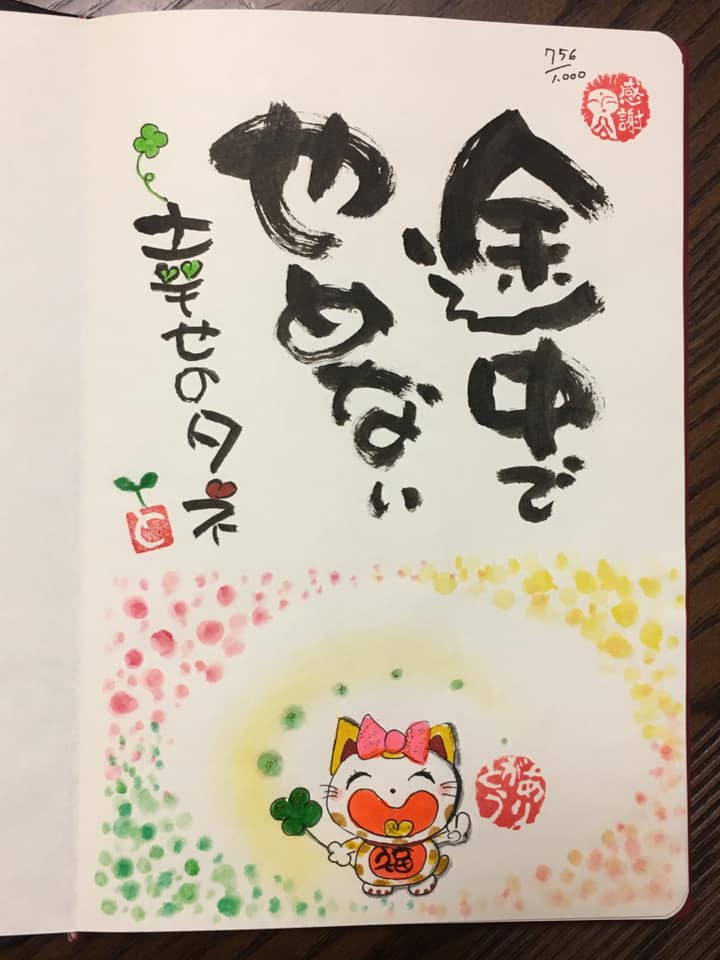 756
1,000
感謝
途中で
やめない
幸せのタネ
と
ありがとう
福